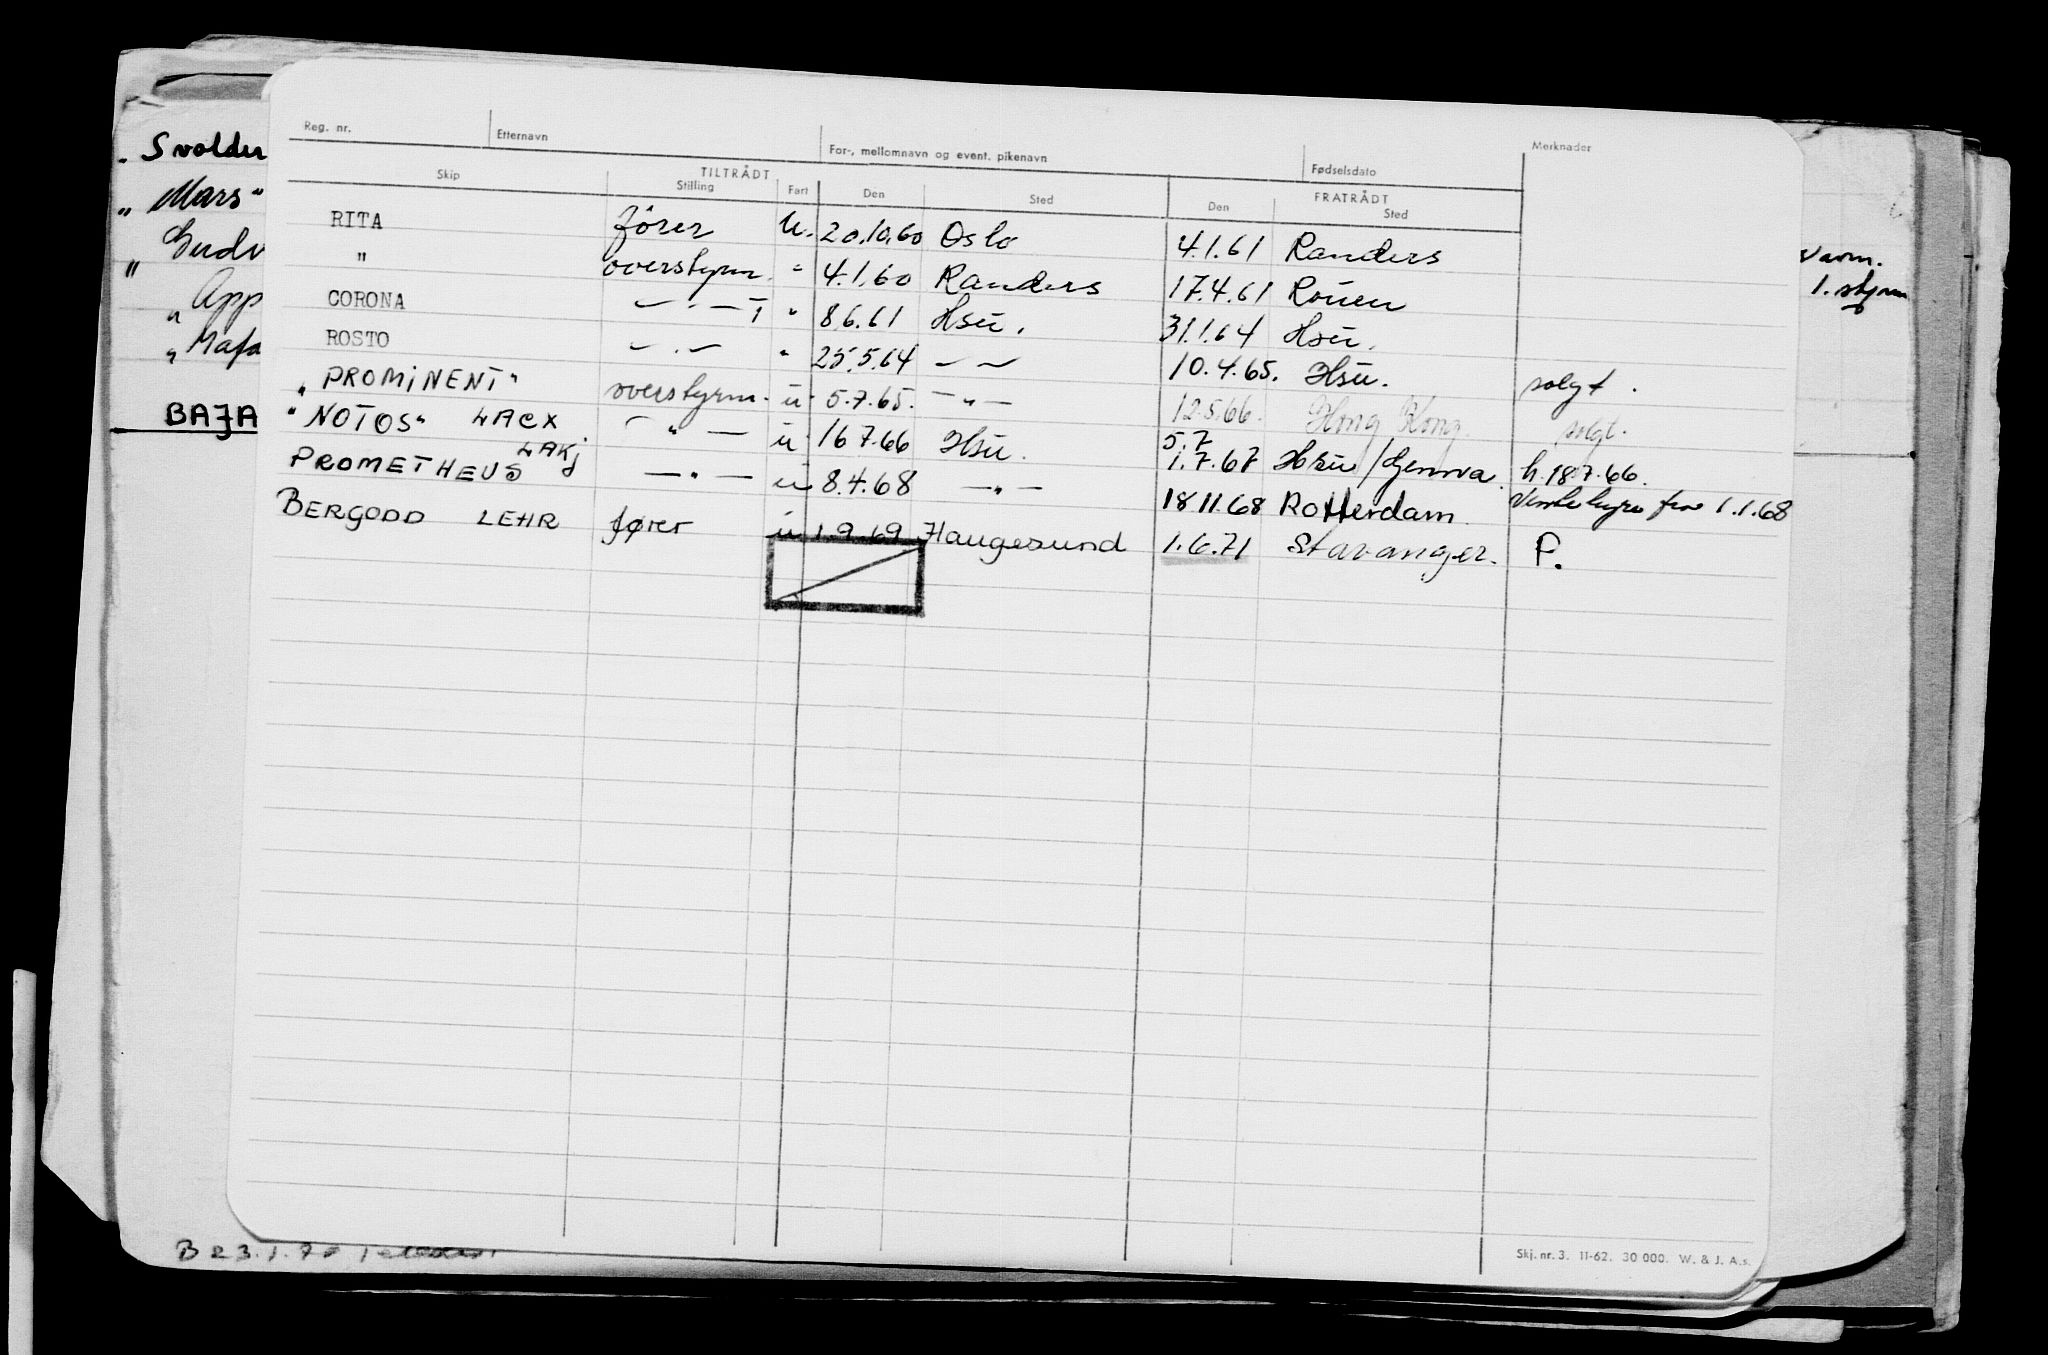 Reg. nr. Etternavn For-, mellomnavn og event. pikenavn Fødselsdato Merknader
TILTRÅDT FRATRÅDT
Skip Stilling Fart Den Sted Den Sted
RITA fører u. 20.10.60 Oslo 4.1.61 Randers
" overstyrm. " 4.1.60 Randers 17.4.61 Rouen
CORONA — " — " 8.6.61 Hsu. 31.1.64 Hsu.
ROSTO — " — " 25.5.64 — — 10.4.65. Hsu. solgt.
"PROMINENT" overstyrm. u 5.7.65. — " — 12.5.66. Hong Kong. solgt.
"NOTOS" LACX — " — u 16.7.66 Hsu. 5.7 1.7.67 Hsu/Genova. h. 18.7.66.
PROMETHEUS LAKJ — " — u 8.4.68 — " — 18.11.68 Rotterdam. fra 1.1.68
BERGODD LEHR fører u 1.9.69 Haugesund 1.6.71 Stavanger. P.
Skj. nr. 3. 11-62. 30 000. W. & J. A.s.
"Svolder
"Mars"
" Gudv
" App
" Mafa
BAJA
1. styrm
B 23.1.70